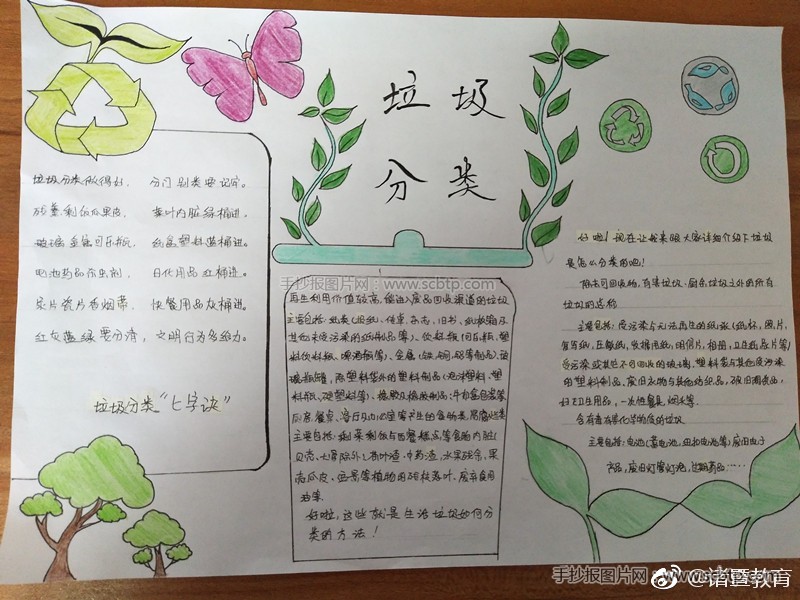 垃圾
分类
垃圾分类做得好，分门别类要记牢。
残羹剩饭瓜果皮，菜叶内脏绿桶进。
玻璃金属可乐瓶，纸盒塑料蓝桶进。
电池药品杀虫剂，日化用品红桶进。
尿片瓷片香烟蒂，快餐用品灰桶进。
红灰蓝绿要分清，文明行为多给力。
垃圾分类“七字诀”
手抄报图片网：www.scbtp.com
再生利用价值较高，能进入废品回收渠道的垃圾
主要包括：纸类（报纸、传单、杂志、旧书、纸板箱及
其他未受污染的纸制品等）、饮料瓶（可乐瓶、塑
料饮料瓶、啤酒瓶等）、金属（铁、铜、铝等制品）、玻
璃瓶罐，废塑料袋外的塑料制品（泡沫塑料、塑
料瓶、硬塑料等）、橡胶及橡胶制品、牛奶盒包装等
厨房、餐桌、客厅及办公室等产生的食物类
主要包括：剩菜剩饭与西餐糕点等食物内脏（
贝壳、七骨除外）、茶叶渣、中药渣、水果残余，果
壳瓜皮、盆景等植物的残枝落叶、废弃食用
油等。
好啦，这些就是生活垃圾如何分
类的方法！
好吧！现在让我来跟大家详细介绍下垃圾
是怎么分类的吧！
除去可回收物，有害垃圾、厨余垃圾之外的所有
垃圾的总称
主要包括：受污染与无法再生的纸张（纸杯，照片，
复写纸，压敏纸，收据用纸，明信片，相册，卫生纸、尿片等）
受污染或其他不可回收的玻璃，塑料袋与其他受污染
的塑料制品，废旧衣物与其他纺织品，破旧陶瓷品，
妇女卫生用品，一次性餐具，烟头等。
含有毒有害化学物质的垃圾
主要包括：电池（蓄电池，纽扣电池等）废旧电子
产品，废旧灯管灯泡，过期药品……
手抄报图片网：www.scbtp.com
@诸暨教育